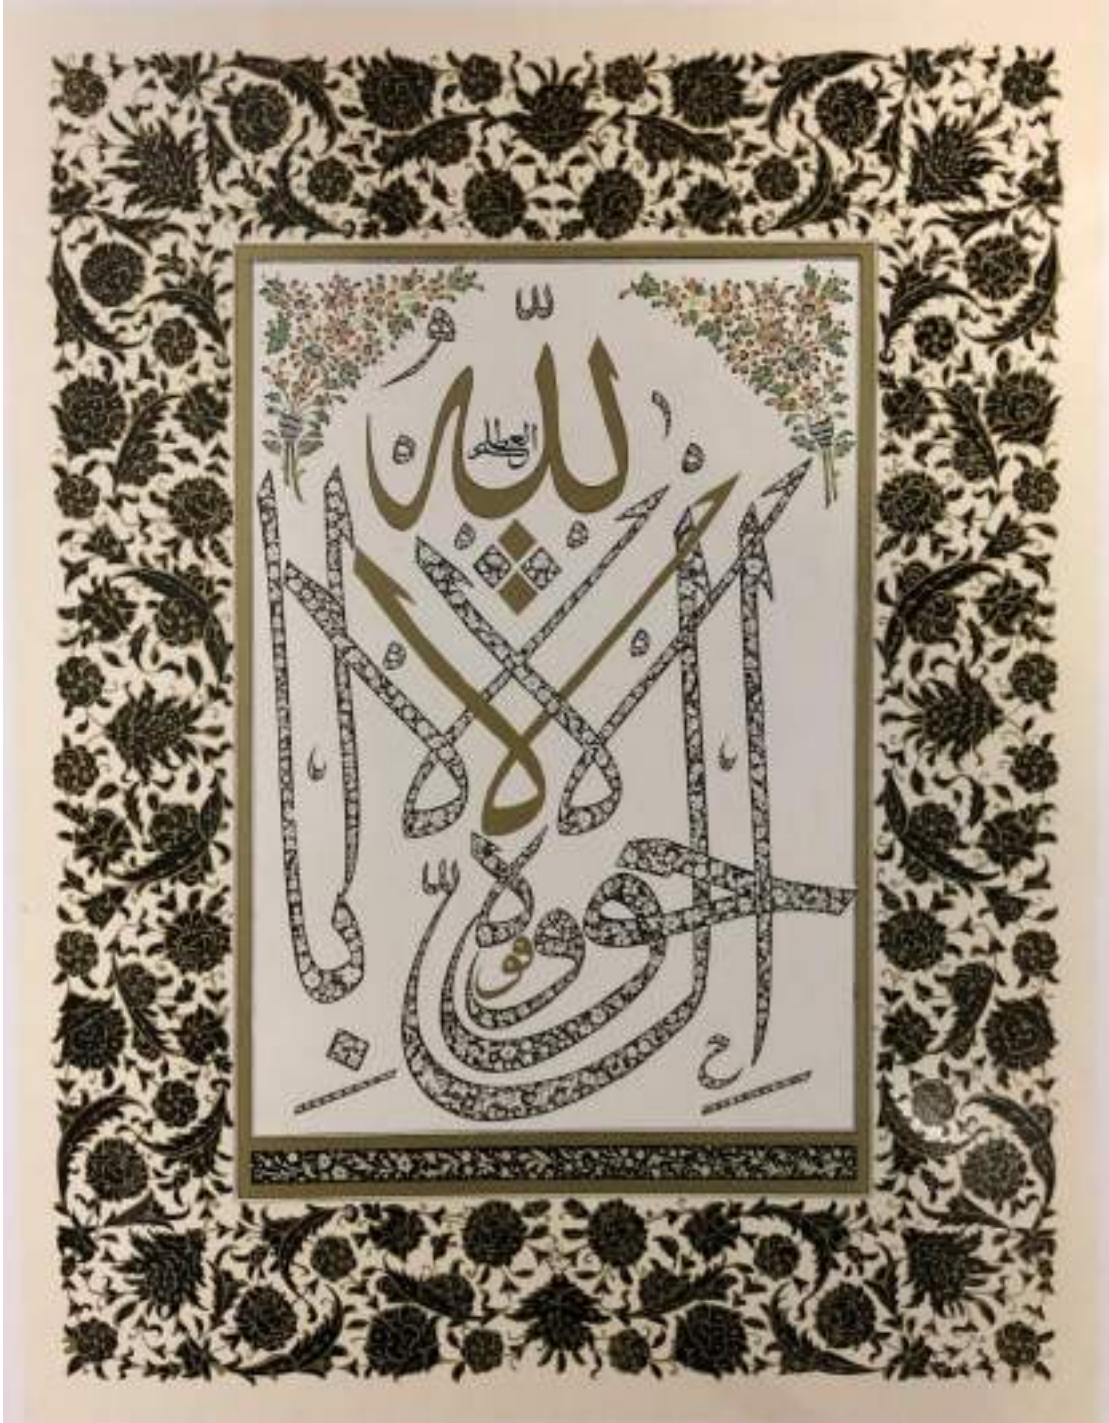 لا حول ولا قوة إلا بالله العلي العظيم